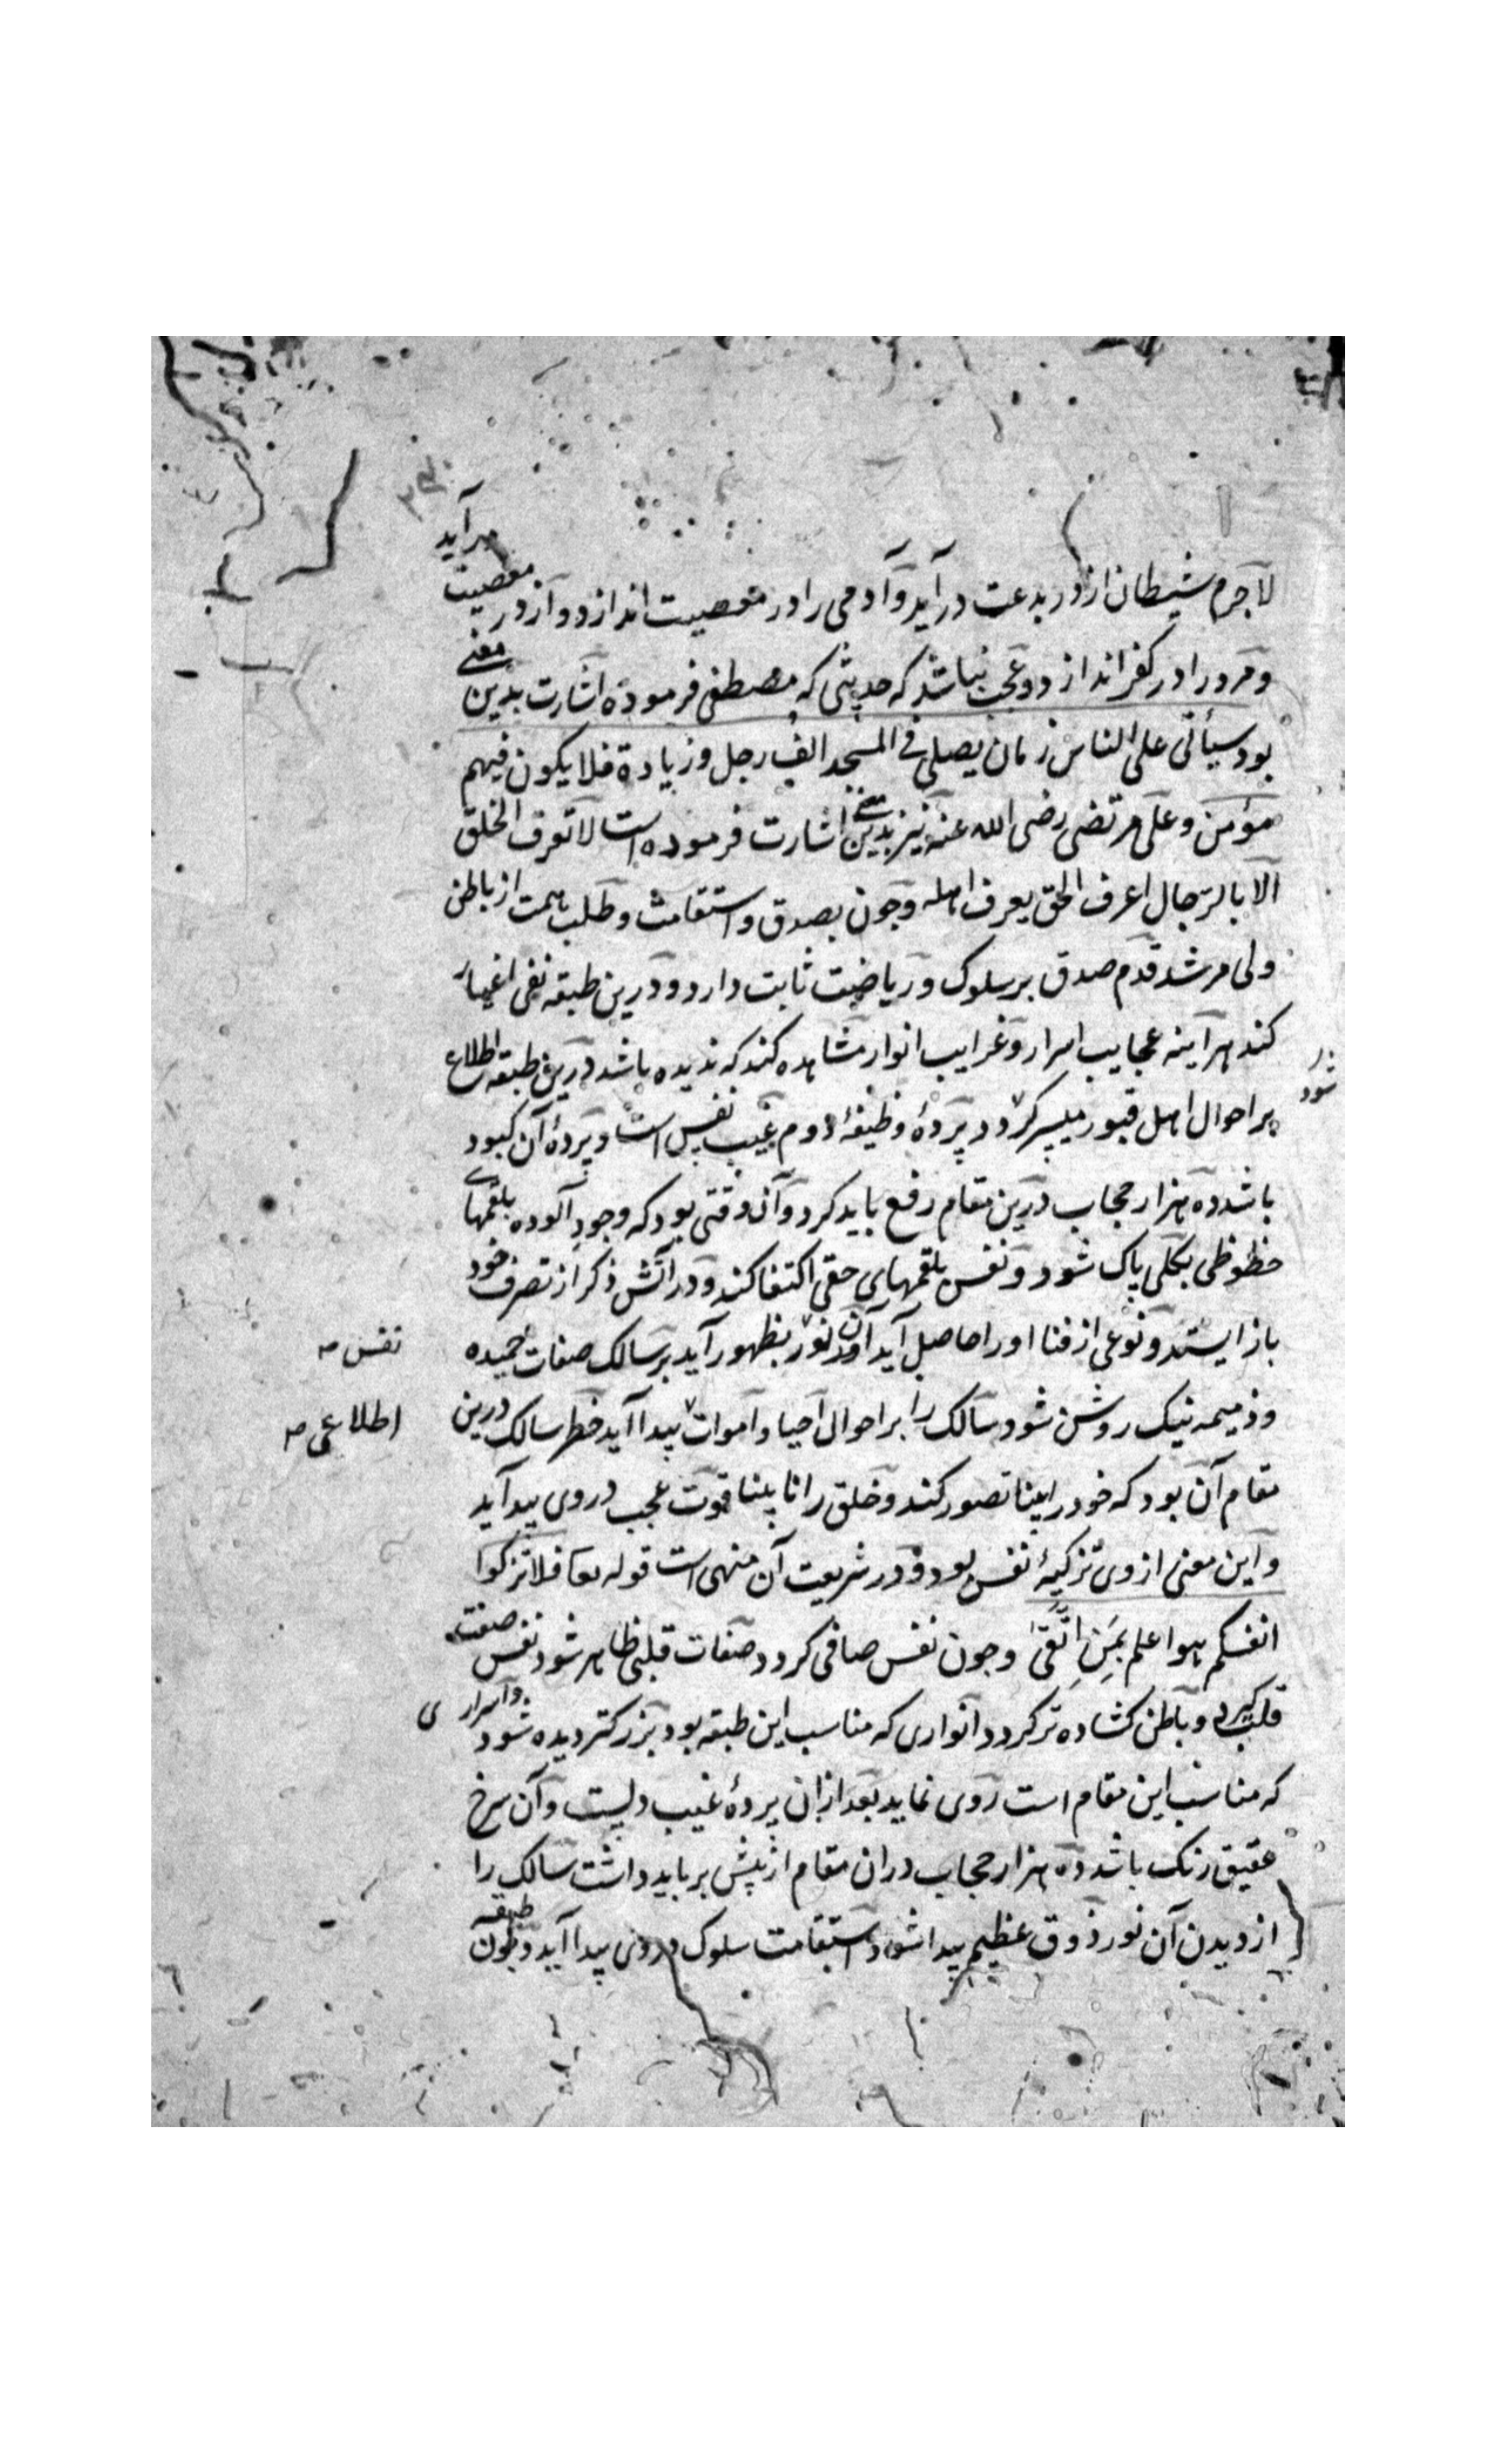 لاجرم شیطان از در بدعت درآید و آدمی را در معصیت اندازد و از در معصیت درآید
و مرد را در کفر اندازد و عجب نباشد که حدیثی که مصطفی فرموده اشارت بدین معنی
بود سیأتی علی الناس زمان یصلی فی المسجد الف رجل و زیادة فلا یکون فیهم
مؤمن و علی مرتضی رضی الله عنه نیز بدین معنی اشارت فرموده است لا تعرف الحق
الا بالرجال اعرف الحق یعرف اهله و چون بصدق و استقامت و طلب همت از باطن
ولی مرشد قدم صدق بر سلوک و ریاضت ثابت دارد و درین طبقه نفی اغیار
کند هرآینه عجایب اسرار و غرایب انوار مشاهده کند که ندیده باشد درین طبقه اطلاع
بر احوال اهل قبور میسر کردد پردۀ وظیفۀ دوم غیب نفس است و پردۀ آن کبود
باشد ده هزار حجاب درین مقام رفع باید کرد و آن وقتی بود که وجود آلوده بلقمهای
حظوظی بکلی پاک شود و نفس بلقمهای حقی اکتفا کند و در آتش ذکر از تصرف خود
باز ایستد و نوعی از فنا او را حاصل آید آن نور بظهور آید بر سالک صفات حمیده
نفس
و ذمیمه نیک روشن شود سالک را بر احوال احیا و اموات پیدا آید خطر سالک درین
اطلاعی
مقام آن بود که خود را بینا تصور کند و خلق را نابینا قوت عجب در وی پیدا آید
و این معنی از وی تزکیۀ نفس بود و در شریعت آن منهی است قوله تعا فلا تزکوا
انفسکم هو اعلم بمن اتقی و چون نفس صافی کردد صفات قلبی ظاهر شود نفس صفت
قلب کیرد و باطن کشاده تر کردد انواری که مناسب این طبقه بود بزرکتر دیده شود و اسراری
که مناسب این مقام است روی نماید بعد ازان پردۀ غیب دلیست و آن سرخ
عقیق رنک باشد ده هزار حجاب دران مقام از پیش بر باید داشت سالک را
از دیدن آن نور ذوق عظیم پیدا شود و استقامت سلوک در وی پیدا آید و چون طبقه